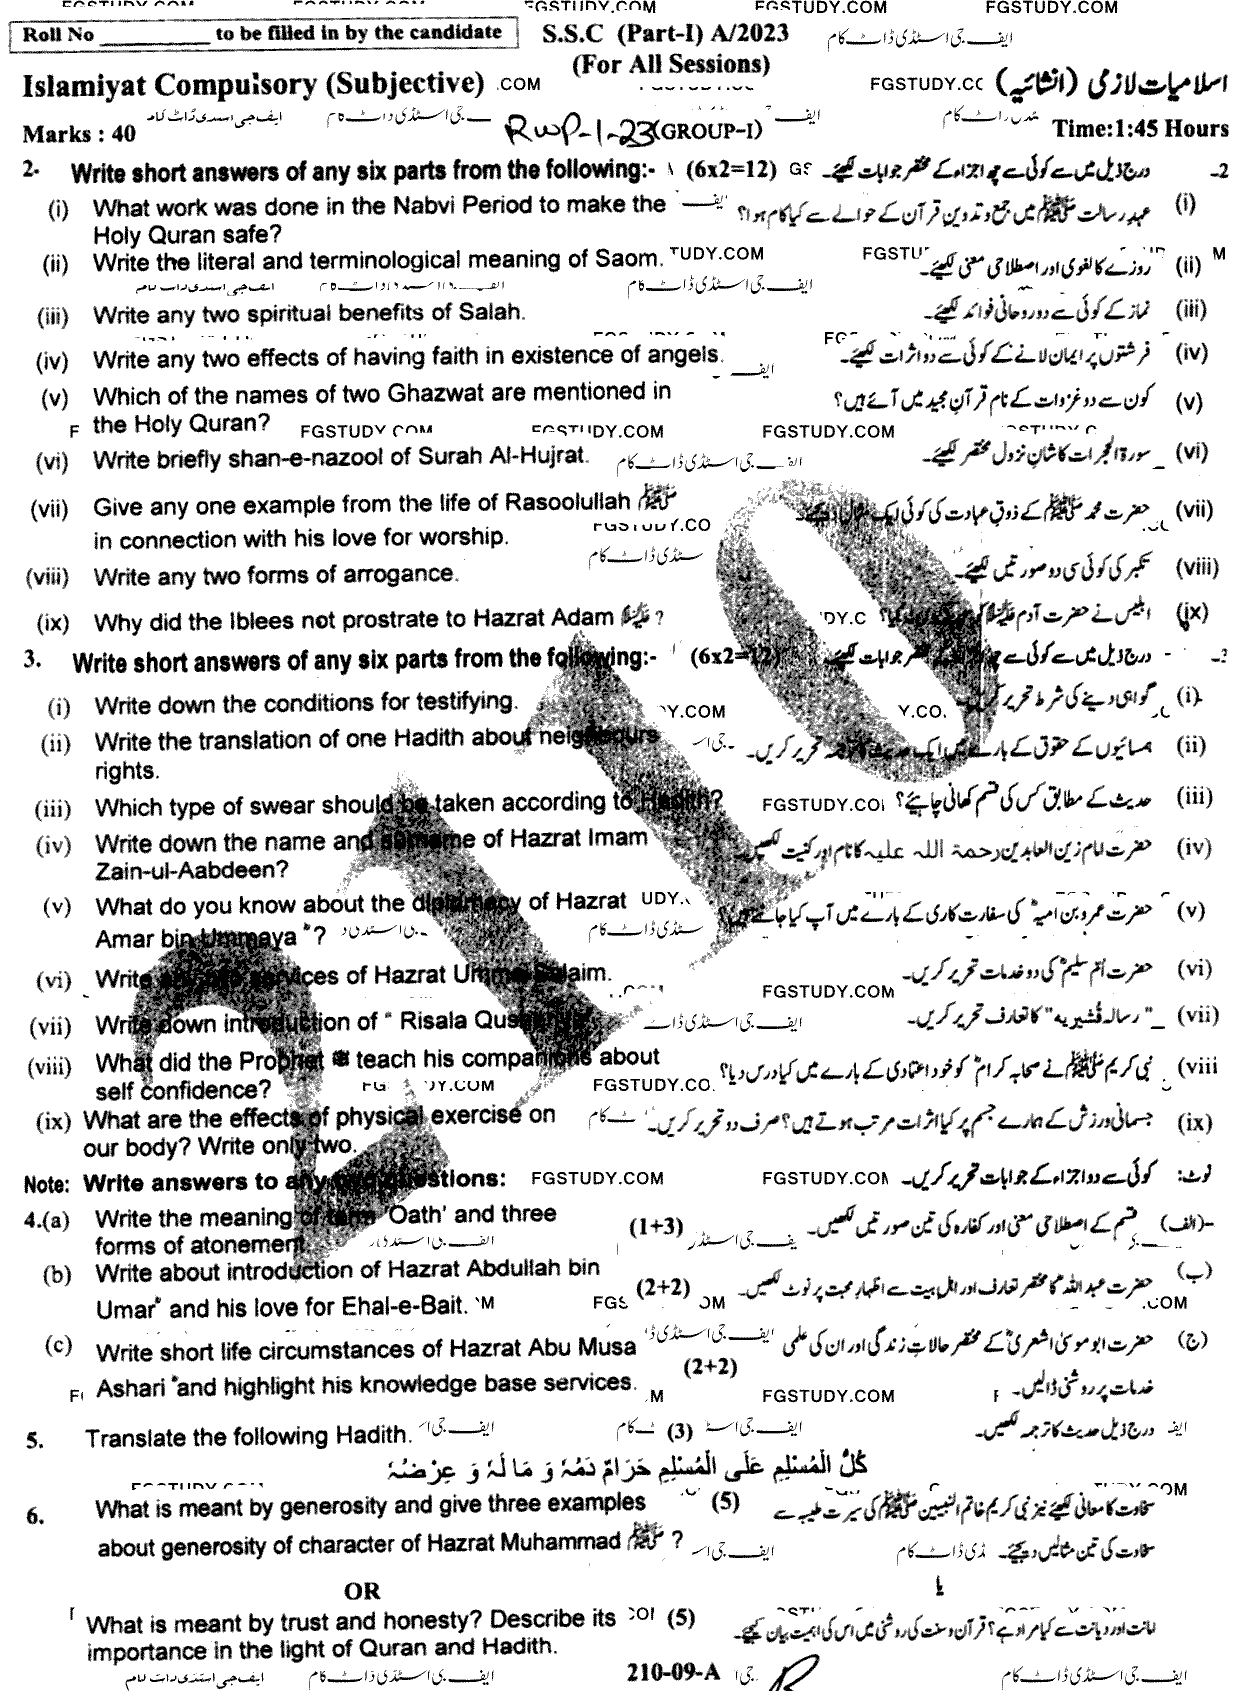 Roll No __________ to be filled in by the candidate S.S.C (Part-I) A/2023 ایف جی اسٹڈی ڈاٹ کام
(For All Sessions)
Islamiyat Compulsory (Subjective) .COM FGSTUDY.C اسلامیات لازمی (انشائیہ)
Marks : 40 RWP-1-23 (GROUP-I) Time:1:45 Hours
2- Write short answers of any six parts from the following:- (6x2=12) درج ذیل میں سے کوئی سے چھ اجزاء کے مختصر جوابات لکھیئے۔ -2
(i) What work was done in the Nabvi Period to make the عہدِ رسالت ﷺ میں جمع و تدوین قرآن کے حوالے سے کیا کام ہوا؟ (i)
Holy Quran safe?
(ii) Write the literal and terminological meaning of Saom. روزے کا لغوی اور اصطلاحی معنی لکھیئے۔ (ii)
(iii) Write any two spiritual benefits of Salah. نماز کے کوئی سے دو روحانی فوائد لکھیئے۔ (iii)
(iv) Write any two effects of having faith in existence of angels. فرشتوں پر ایمان لانے کے کوئی سے دو اثرات لکھیئے۔ (iv)
(v) Which of the names of two Ghazwat are mentioned in کون سے دو غزوات کے نام قرآن مجید میں آئے ہیں؟ (v)
the Holy Quran? FGSTUDY.COM FGSTUDY.COM FGSTUDY.COM
(vi) Write briefly shan-e-nazool of Surah Al-Hujrat. ایف جی اسٹڈی ڈاٹ کام سورۃ الحجرات کا شانِ نزول مختصر لکھیئے۔ (vi)
(vii) Give any one example from the life of Rasoolullah ﷺ حضرت محمد ﷺ کے ذوقِ عبادت کی کوئی ایک مثال دیجئے۔ (vii)
in connection with his love for worship.
(viii) Write any two forms of arrogance. تکبر کی کوئی سی دو صورتیں لکھیئے۔ (viii)
(ix) Why did the Iblees not prostrate to Hazrat Adam ؑ ? ابلیس نے حضرت آدم ؑ کو (ix)
3. Write short answers of any six parts from the following:- (6x2=12) درج ذیل میں سے کوئی سے چھ اجزاء کے مختصر جوابات لکھیئے۔
(i) Write down the conditions for testifying. گواہی دینے کی شرط تحریر کریں۔ (i)
(ii) Write the translation of one Hadith about neighbours ہمسائیوں کے حقوق کے بارے میں ایک حدیث کا ترجمہ تحریر کریں۔ (ii)
rights.
(iii) Which type of swear should be taken according to Hadith? حدیث کے مطابق کس کی قسم کھانی چاہیئے؟ (iii)
(iv) Write down the name and surname of Hazrat Imam حضرت امام زین العابدین رحمۃ اللہ علیہ کا نام اور کنیت لکھیں۔ (iv)
Zain-ul-Aabdeen?
(v) What do you know about the diplomacy of Hazrat حضرت عمرو بن امیہؓ کی سفارت کاری کے بارے میں آپ کیا جانتے ہیں؟ (v)
Amar bin Ummaya ؓ ?
(vi) Write any two services of Hazrat Umme Salaim. حضرت اُمّ سلیمؓ کی دو خدمات تحریر کریں۔ (vi)
FGSTUDY.COM
(vii) Write down introduction of " Risala Qushairia" "رسالہ قُشیریہ" کا تعارف تحریر کریں۔ (vii)
(viii) What did the Prophet ﷺ teach his companions about نبی کریم ﷺ نے صحابہ کرامؓ کو خود اعتمادی کے بارے میں کیا درس دیا؟ (viii
self confidence? FGSTUDY.CO
(ix) What are the effects of physical exercise on جسمانی ورزش کے ہمارے جسم پر کیا اثرات مرتب ہوتے ہیں؟ صرف دو تحریر کریں۔ (ix)
our body? Write only two.
Note: Write answers to any two questions: FGSTUDY.COM FGSTUDY.COM کوئی سے دو اجزاء کے جوابات تحریر کریں۔ نوٹ:
4.(a) Write the meaning of term 'Oath' and three (1+3) قسم کے اصطلاحی معنی اور کفارہ کی تین صورتیں لکھیں۔ (الف)
forms of atonement.
(b) Write about introduction of Hazrat Abdullah bin (2+2) حضرت عبداللہؓ کا مختصر تعارف اور اہل بیت سے اظہارِ محبت پر نوٹ لکھیں۔ (ب)
Umarؓ and his love for Ehal-e-Bait.
(c) Write short life circumstances of Hazrat Abu Musa (2+2) حضرت ابو موسیٰ اشعریؓ کے مختصر حالاتِ زندگی اور ان کی علمی (ج)
Ashariؓ and highlight his knowledge base services. FGSTUDY.COM خدمات پر روشنی ڈالیں۔
5. Translate the following Hadith. (3) درج ذیل حدیث کا ترجمہ لکھیں۔
كُلُّ الْمُسْلِمِ عَلَى الْمُسْلِمِ حَرَامٌ دَمُهٗ وَ مَالُهٗ وَ عِرْضُهٗ
6. What is meant by generosity and give three examples (5) سخاوت کا معانی لکھیئے نیز نبی کریم خاتم النبیین ﷺ کی سیرت طیبہ سے
about generosity of character of Hazrat Muhammad ﷺ ? سخاوت کی تین مثالیں دیجئے۔
OR یا
What is meant by trust and honesty? Describe its (5) امانت اور دیانت سے کیا مراد ہے؟ قرآن و سنت کی روشنی میں اس کی اہمیت بیان کیجیئے۔
importance in the light of Quran and Hadith.
ایف جی اسٹڈی ڈاٹ کام 210-09-A ایف جی اسٹڈی ڈاٹ کام